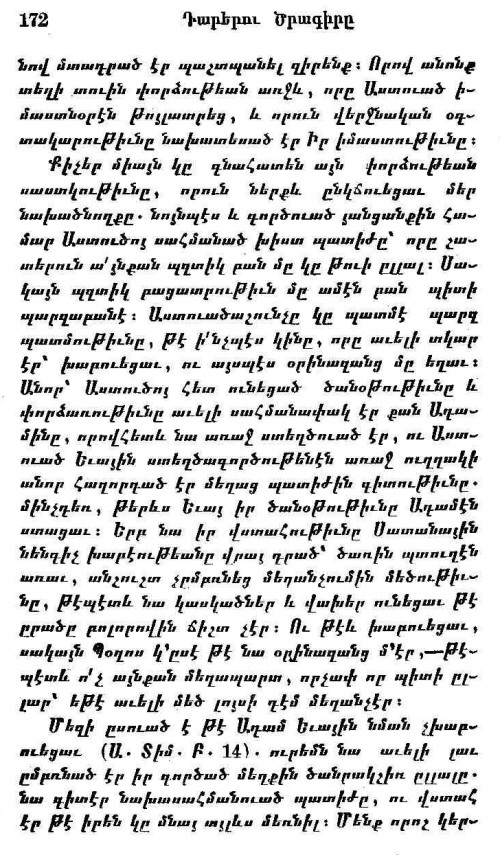 172 Դարերու Ծրագիրը
նով մտադրած էր պաշտպանել զիրենք։ Որով անոնք
տեղի տուին փորձութեան առջև, որը Աստուած ի-
մաստնօրէն թոյլատրեց, և որուն վերջնական օգ-
տակարութիւնը նախատեսած էր Իր իմաստութիւնը։
Քիչեր միայն կը գնահատեն այն փորձութեան
սաստկութիւնը, որուն ներքև ընկճուեցաւ մեր
նախածնողքը. նոյնպէս և գործուած յանցանքին Հա-
մար Աստուծոյ սահմանած խիստ պատիժը՝ որը շա-
տերուն ա՛յնքան պզտիկ բան մը կը թուի ըլլալ։ Սա-
կայն պզտիկ բացատրութիւն մը ամէն բան պիտի
պարզաբանէ։ Աստուածաշունչը կը պատմէ պարզ
պատմութիւնը, թէ ի՛նչպէս կինը, որը աւելի տկար
էր՝ խաբուեցաւ, ու այսպէս օրինազանց մը եղաւ։
Անոր՝ Աստուծոյ Հետ ունեցած ծանօթութիւնը և
փորձառութիւնը աւելի սահմանափակ էր քան Ադա-
մինը, որովՀետև նա առաջ ստեղծուած էր, ու Աստ-
ուած Եւային ստեղծագործութենէն առաջ ուղղակի
անոր Հաղորդած էր մեղաց պատիժին գիտութիւնը.
մինչդեռ, թերևս Եւայ իր ծանօթութիւնը Ադամէն
ստացաւ։ Երբ նա իր վստահութիւնը Սատանային
նենգիչ խաբէութեանը վրայ դրած՝ ծառին պտուղէն
առաւ, անշուշտ չըմբռնեց մեղանչումին մեծութիւ-
նը, թէպէտև նա կասկածներ և վախեր ունեցաւ թէ
ըրածը բոլորովին ճիշտ չէր։ Ու թէև խաբուեցաւ,
սակայն Պօղոս կ՚ըսէ թէ նա օրինազանց մ՚էր,—թէ-
պէտև ո՛չ այնքան մեղապարտ, որչափ որ պիտի ըլ-
լար՝ եթէ աւելի մեծ լոյսի դէմ մեղանչէր։
Մեզի ըսուած է թէ Ադամ Եւային նման չխաբ-
ուեցաւ (Ա. Տիմ. Բ. 14). ուրեմն նա աւելի լաւ
ըմբռնած էր իր գործած մեղքին ծանրակշիռ ըլլալը.
նա գիտէր նախասահմանուած պատիժը, ու վստահ
էր թէ իրեն կը մնայ այլևս մեռնիլ։ Մենք որոշ կեր-